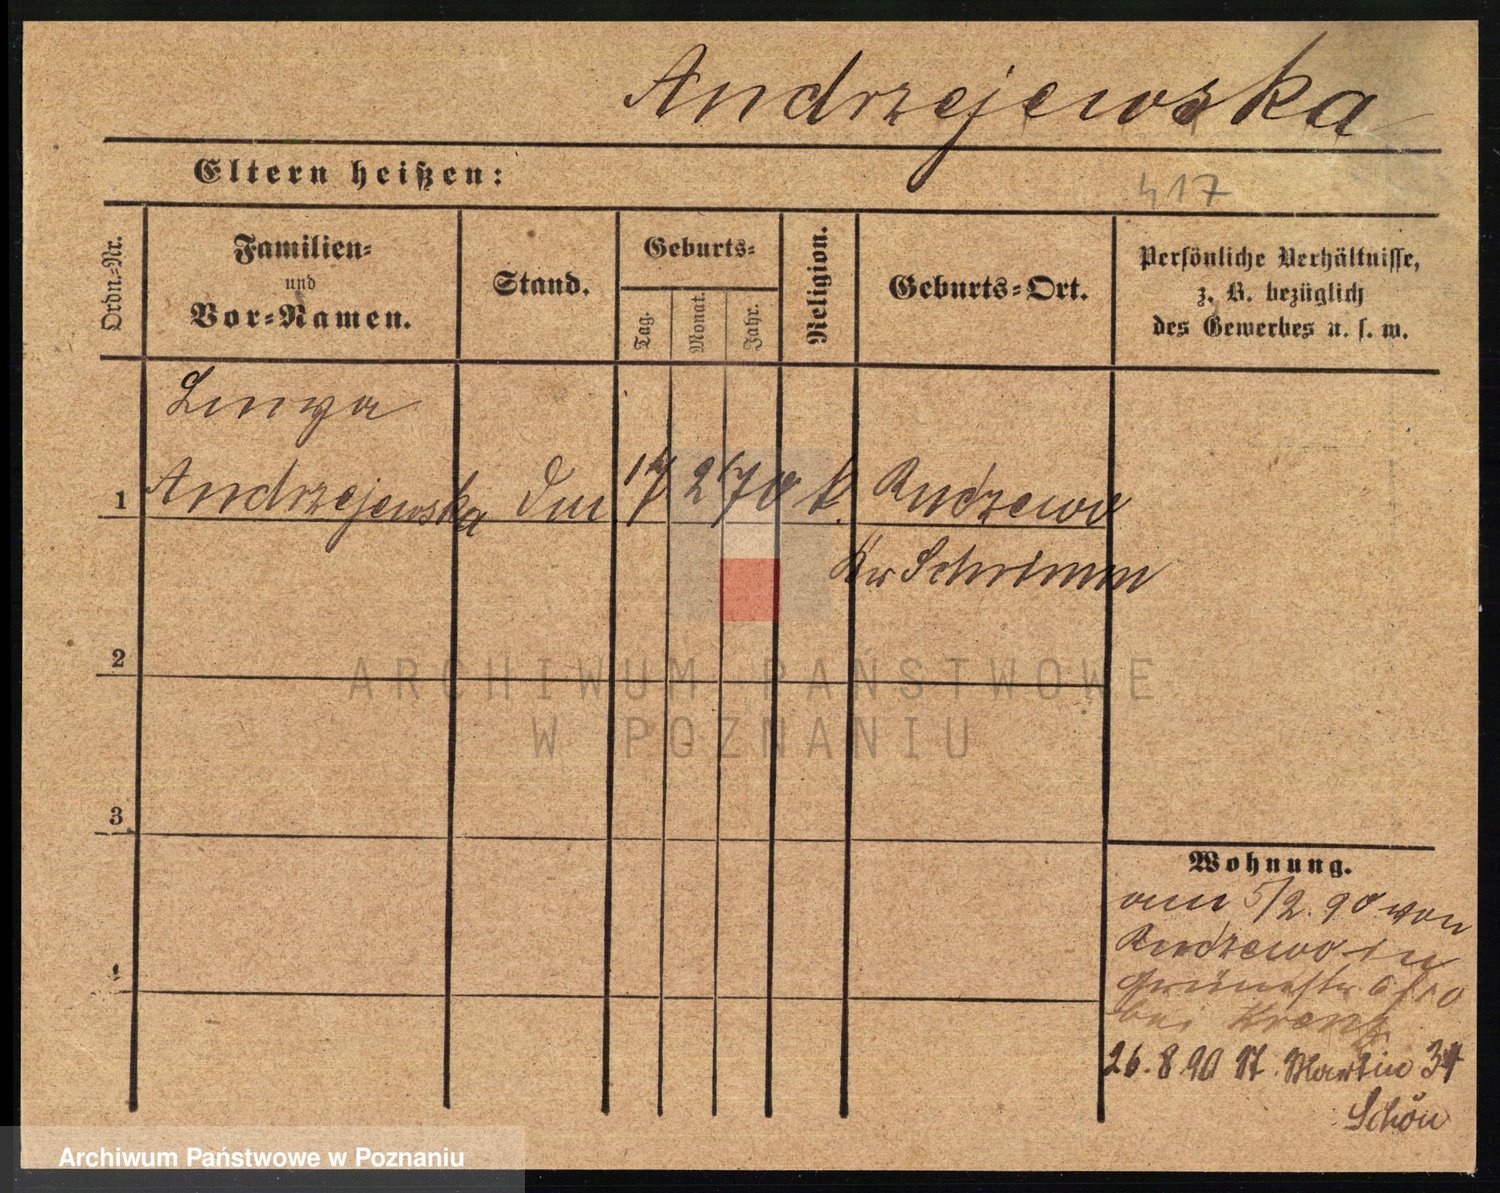 Andrzejewska
Eltern heißen:
417
Ordn.=Nr.
Familien=
und
Vor=Namen.
Stand.
Geburts=
Tag.
Monat.
Jahr.
Religion.
Geburts=Ort.
Persönliche Verhältnisse,
z. B. bezüglich
des Gewerbes u. s. w.
1
Andrzejewska
17 2 70 k.
Kr Schrimm
2
ARCHIWUM PAŃSTWOWE
W POZNANIU
3
Wohnung.
5/2. 90 von
in
Grünestr.
bei
26. 8 90 St. Martin 34
Schön
Archiwum Państwowe w Poznaniu